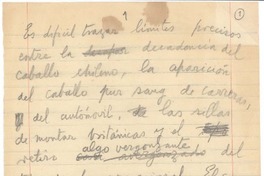 1
Es difícil trazar límites precisos
entre la decadencia del
caballo chileno, la aparición
del caballo pur sang de carreras,
del automóvil, las sillas
de montar británicas y el
retiro algo vergonzante
del El